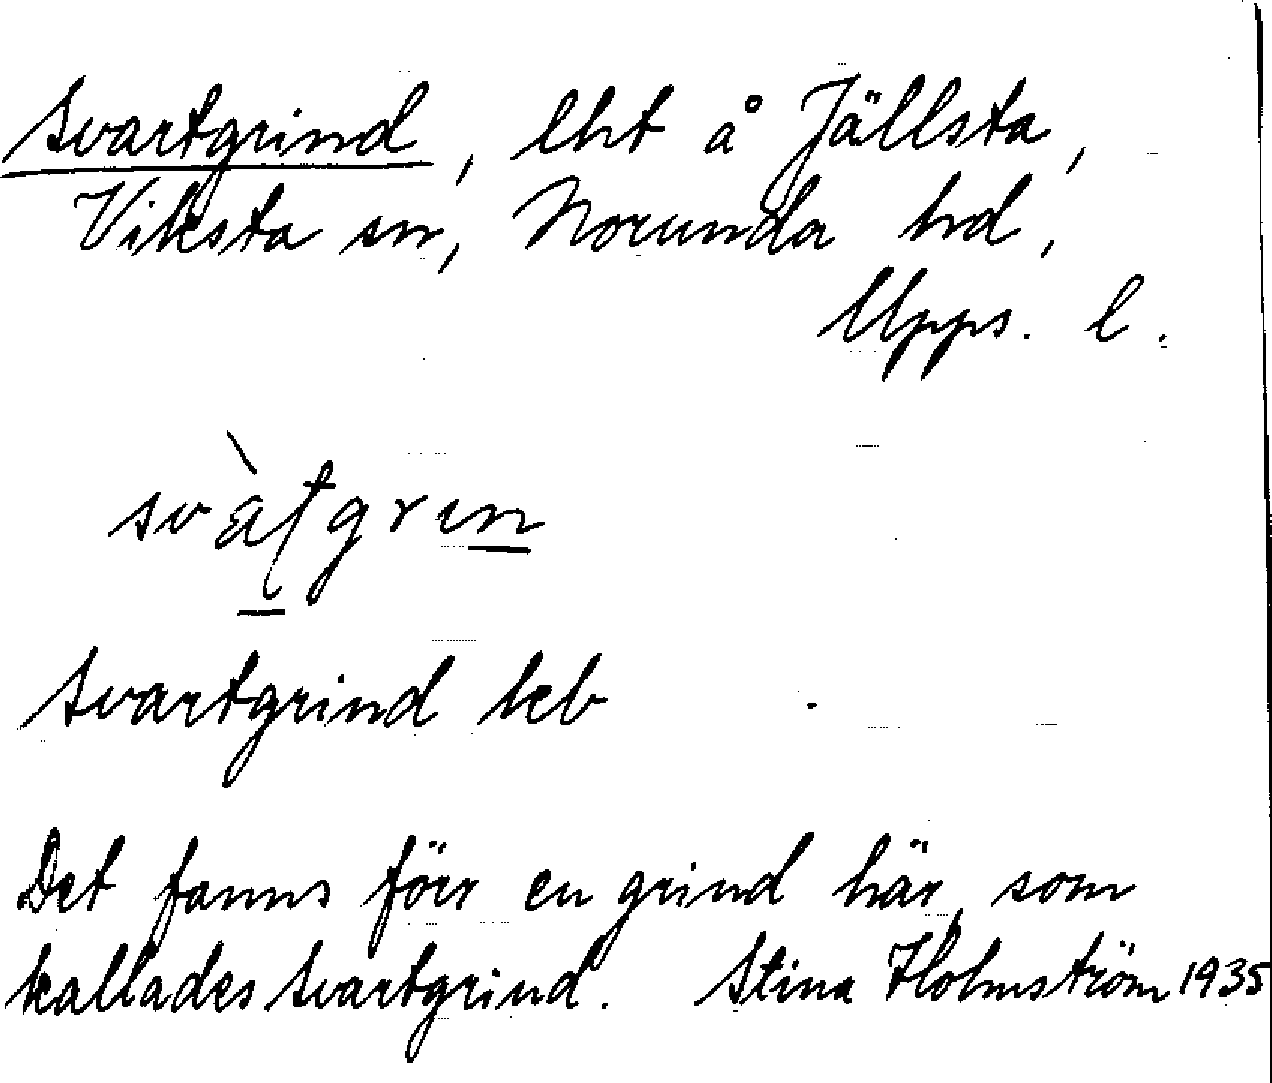 Svartgrind, lht å Jällsta,
Viksta sn, Norunda hd,
Upps. l.
Svartgrind keb
Det fanns förr en grind här, som
kallades Svartgrind. Stina Holmström 1935